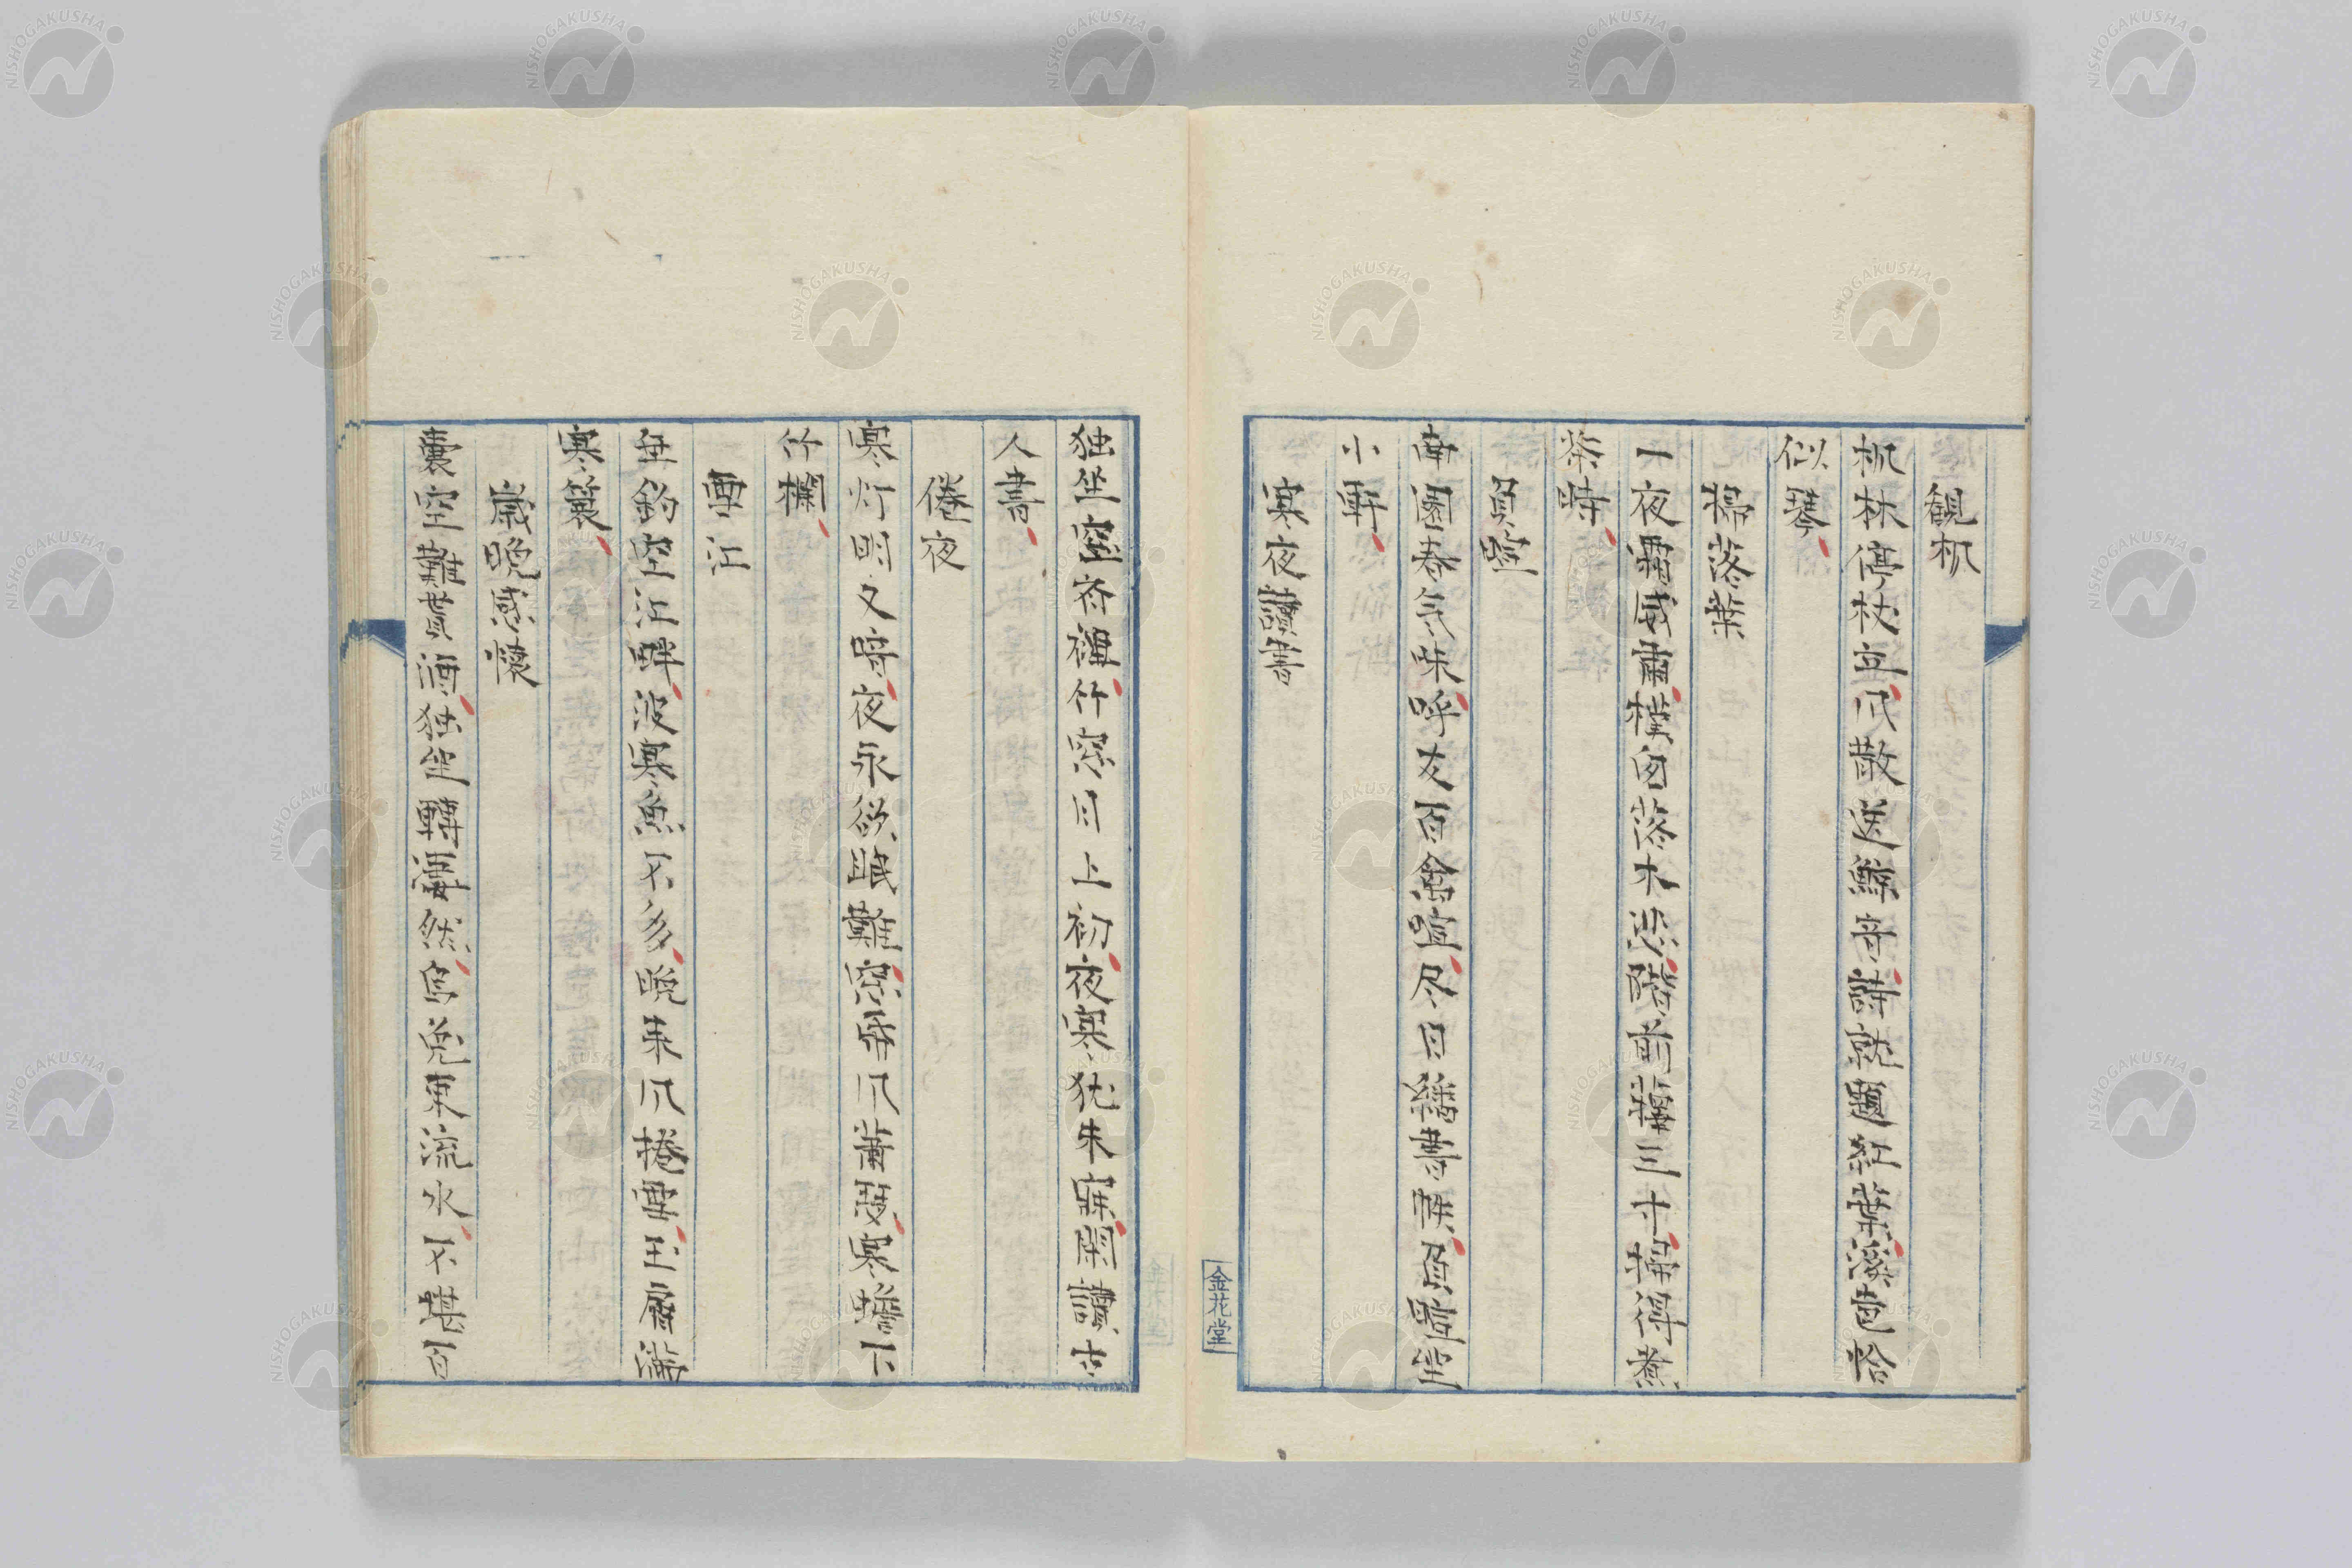 観枫
枫林停杖立风散送蝉音詩就題紅葉渓声恰
似琴
掃落葉
一夜霜威重撲窓落木迷階前積三寸掃得煮
茶時
負暄
南園春气味呼友百禽喧尽日繙書惧負暄坐
小軒
寒夜讀書
金花堂
独坐空斎裡竹窓月上初夜寒犹未寐閑讀古
人書
倦夜
寒灯明又暗夜永欲眠難窓角风蕭瑟寒檐下
竹欄
雪江
垂釣空江畔波寒魚不多晩来风捲雪玉屑満
寒簑
歳晩感懐
嚢空難貰酒独坐轉凄然烏兎東流水不堪百
NISHOGAKUSHA